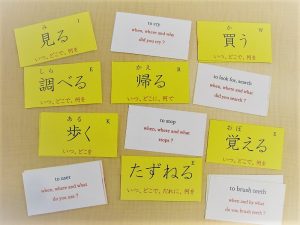 み I
見る
いつ、どこで、何を
when, where and why
did you
か W
買う
いつ、どこで、何を
しら E
調べる
いつ、どこで、何を
かえ R
帰る
いつ、どこに、何で
to look for, search
when, where and what
did you search ?
ある K
歩く
いつ、どこを
to stop
when, where and what
stops ?
おぼ E
覚える
いつ、どこで、何を
to
when, where and what
do you use ?
E
たずねる
いつ、どこで、だれに、何を
to brush teeth
when and by what
do you brush teeth ?